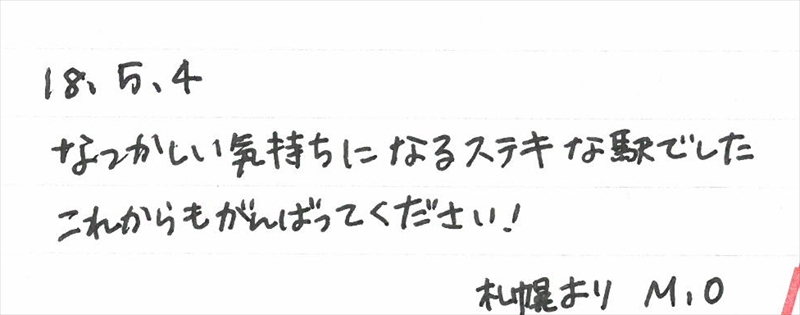 18、5、4
なつかしい気持ちになるステキな駅でした
これからもがんばってください!
札幌より M.O